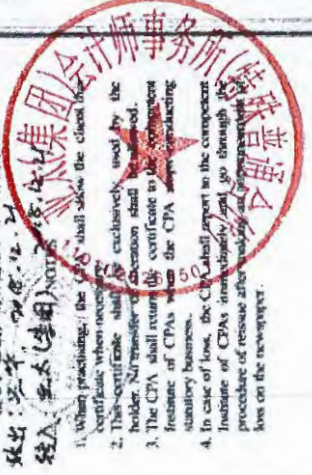 转出：
转入：亚太(集团)
NOTES
1. When practising, the CPA shall show the client this
certificate when necessary.
2. This certificate shall be exclusively used by the
holder. No transfer or alteration shall be allowed.
3. The CPA shall return the certificate to the competent
Institute of CPAs when the CPA stops conducting
statutory business.
4. In case of loss, the CPA shall report to the competent
Institute of CPAs immediately and go through the
procedure of reissue after making an announcement of
loss on the newspaper.
亚太(集团)会计师事务所(特殊普通合伙)